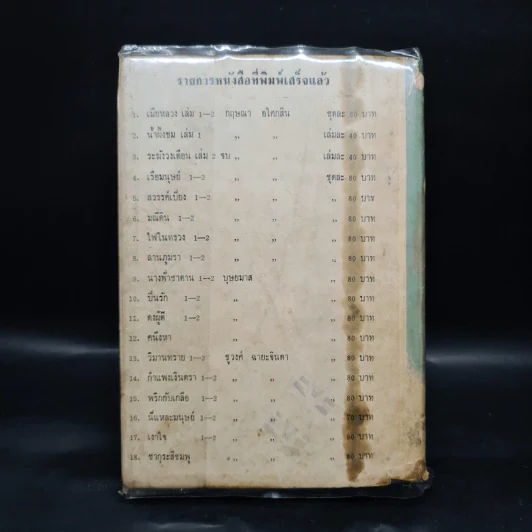 รายการหนังสือที่พิมพ์เสร็จแล้ว
1. เมียหลวง เล่ม 1—2 กฤษณา อโศกสิน ชุดละ 80 บาท
2. น้ำผึ้งขม เล่ม 1 ,, ,, เล่มละ 40 บาท
3. ระฆังวงเดือน เล่ม 2 จบ ,, ,, เล่มละ 40 บาท
4. เรือมนุษย์ 1—2 ,, ,, ชุดละ 80 บาท
5. สวรรค์เบี่ยง 1—2 ,, ,, ,, 80 บาท
6. มณีดิน 1—2 ,, ,, ,, 80 บาท
7. ไฟในทรวง 1—2 ,, ,, ,, 80 บาท
8. ลานภุมรา 1—2 ,, ,, ,, 80 บาท
9. นางฟ้าซาตาน 1—2 บุษยมาส ,, 80 บาท
10. ปิ่นรัก 1—2 ,, ,, 80 บาท
11. ดงผู้ดี 1—2 ,, ,, 80 บาท
12. คนึงหา ,, ,, 80 บาท
13. วิมานทราย 1—2 ชูวงศ์ ฉายะจินดา ,, 80 บาท
14. กำแพงเงินตรา 1—2 ,, ,, ,, 80 บาท
15. พริกกับเกลือ 1—2 ,, ,, ,, 80 บาท
16. นี่แหละมนุษย์ 1—2 ,, ,, ,, 70 บาท
17. เงาใจ 1—2 ,, ,, ,, 80 บาท
18. ซากุระสีชมพู ,, ,, ,, 80 บาท